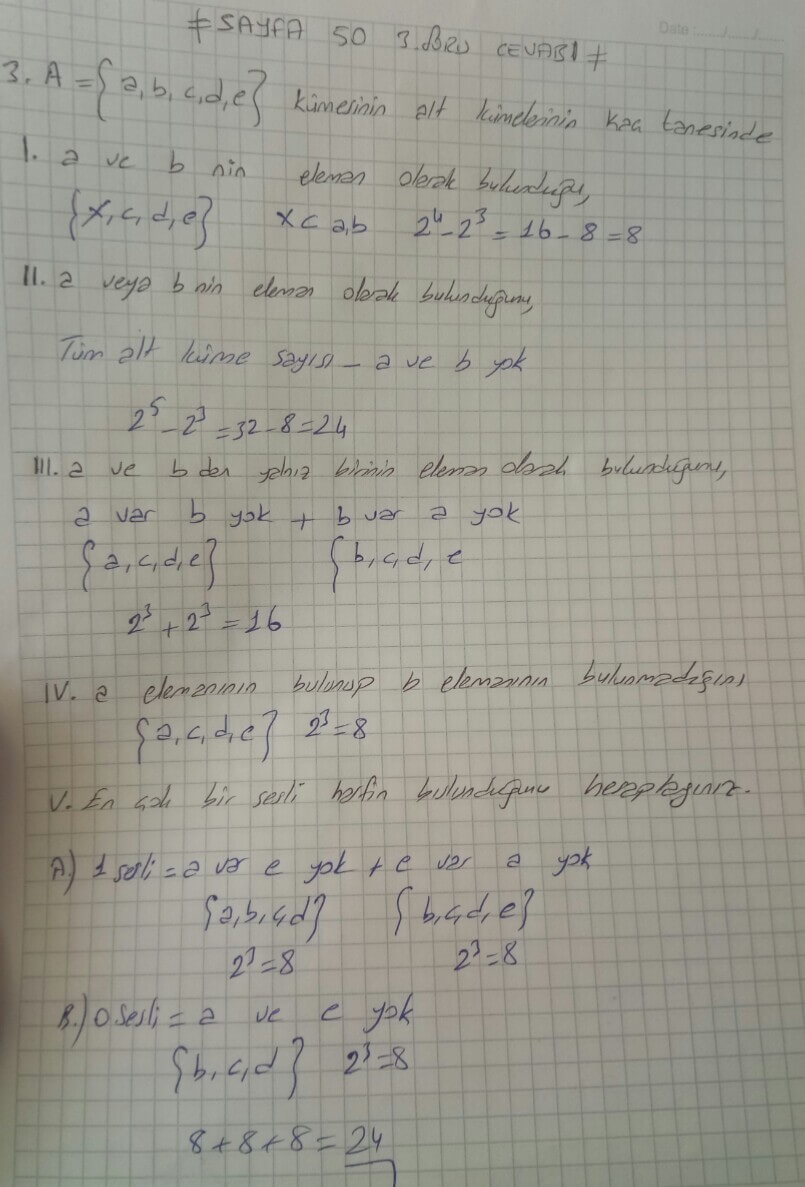 ≠ SAYFA 50 3. SORU CEVABI ≠
Date :
3. A = {a, b, c, d, e} kümesinin alt kümelerinin kaç tanesinde
I. a ve b nin eleman olarak bulunduğu,
{x, c, d, e} x ⊂ a,b 2⁴ - 2³ = 16 - 8 = 8
II. a veya b nin eleman olarak bulunduğunu,
Tüm alt küme sayısı - a ve b yok
2⁵ - 2³ = 32 - 8 = 24
III. a ve b den yalnız birinin eleman olarak bulunduğunu,
a var b yok + b var a yok
{a, c, d, e} {b, c, d, e
2³ + 2³ = 16
IV. a elemanının bulunup b elemanının bulunmadığını
{a, c, d, e} 2³ = 8
V. En çok bir sesli harfin bulunduğunu hesaplayınız.
A.) 1 sesli = a var e yok + e var a yok
{a, b, c, d} {b, c, d, e}
2³ = 8 2³ = 8
B.) 0 sesli = a ve e yok
{b, c, d} 2³ = 8
8 + 8 + 8 = 24